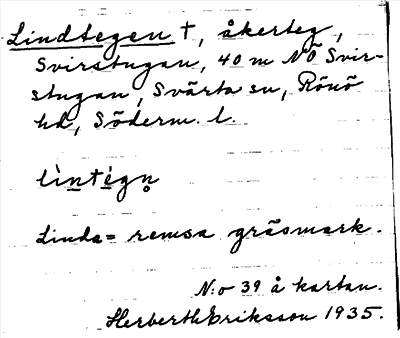 Lindtegen †, åkerteg,
Svirstugan, 40 m NÖ Svir-
stugan, Svärta sn, Rönö
hd, Söderm. l.
lìntégn̥
Linda = remsa gräsmark.
N:o 39 å kartan.
Herberth Eriksson 1935.